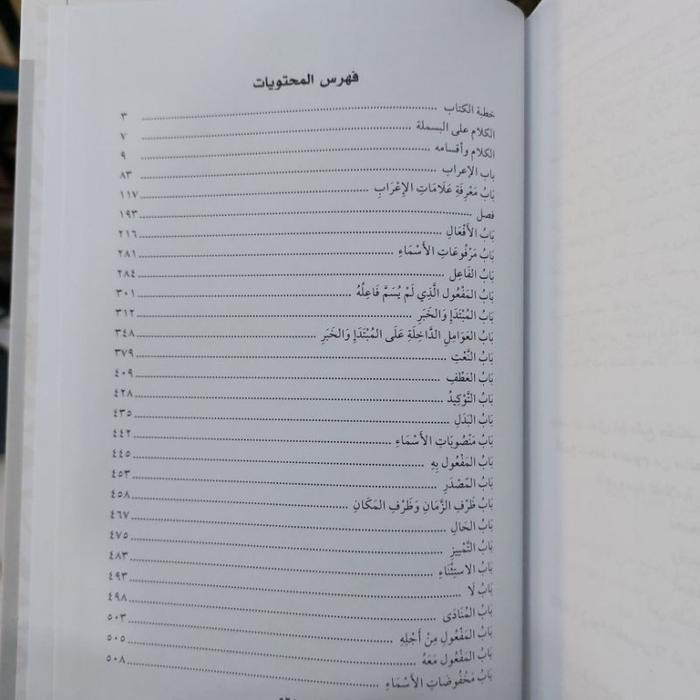 فهرس المحتويات
خطبة الكتاب ........ ٣
الكلام على البسملة ........ ٧
الكلام وأقسامه ........ ٩
باب الإعراب ........ ٨٣
بَابُ مَعْرِفَةِ عَلَامَاتِ الإِعْرَابِ ........ ١١٧
فصل ........ ١٩٣
بَابُ الأَفْعَالِ ........ ٢١٦
بَابُ مَرْفُوعَاتِ الأَسْمَاءِ ........ ٢٨١
بَابُ الفَاعِلِ ........ ٢٨٤
بَابُ المَفْعُولِ الَّذِي لَمْ يُسَمَّ فَاعِلُهُ ........ ٣٠١
بَابُ المُبْتَدَإِ وَالخَبَرِ ........ ٣١٢
بَابُ العَوَامِلِ الدَّاخِلَةِ عَلَى المُبْتَدَإِ وَالخَبَرِ ........ ٣٤٨
بَابُ النَّعْتِ ........ ٣٧٩
بَابُ العَطْفِ ........ ٤٠٩
بَابُ التَّوْكِيدُ ........ ٤٢٨
بَابُ البَدَلِ ........ ٤٣٥
بَابُ مَنْصُوبَاتِ الأَسْمَاءِ ........ ٤٤٢
بَابُ المَفْعُولِ بِهِ ........ ٤٤٥
بَابُ المَصْدَرِ ........ ٤٥٣
بَابُ ظَرْفِ الزَّمَانِ وَظَرْفِ المَكَانِ ........ ٤٥٨
بَابُ الحَالِ ........ ٤٦٧
بَابُ التَّمْيِيزِ ........ ٤٧٥
بَابُ الاسْتِثْنَاءِ ........ ٤٨٣
بَابُ لَا ........ ٤٩٣
بَابُ المُنَادَى ........ ٤٩٨
بَابُ المَفْعُولِ مِنْ أَجْلِهِ ........ ٥٠٣
بَابُ المَفْعُولِ مَعَهُ ........ ٥٠٥
بَابُ مَخْفُوضَاتِ الأَسْمَاءِ ........ ٥٠٨